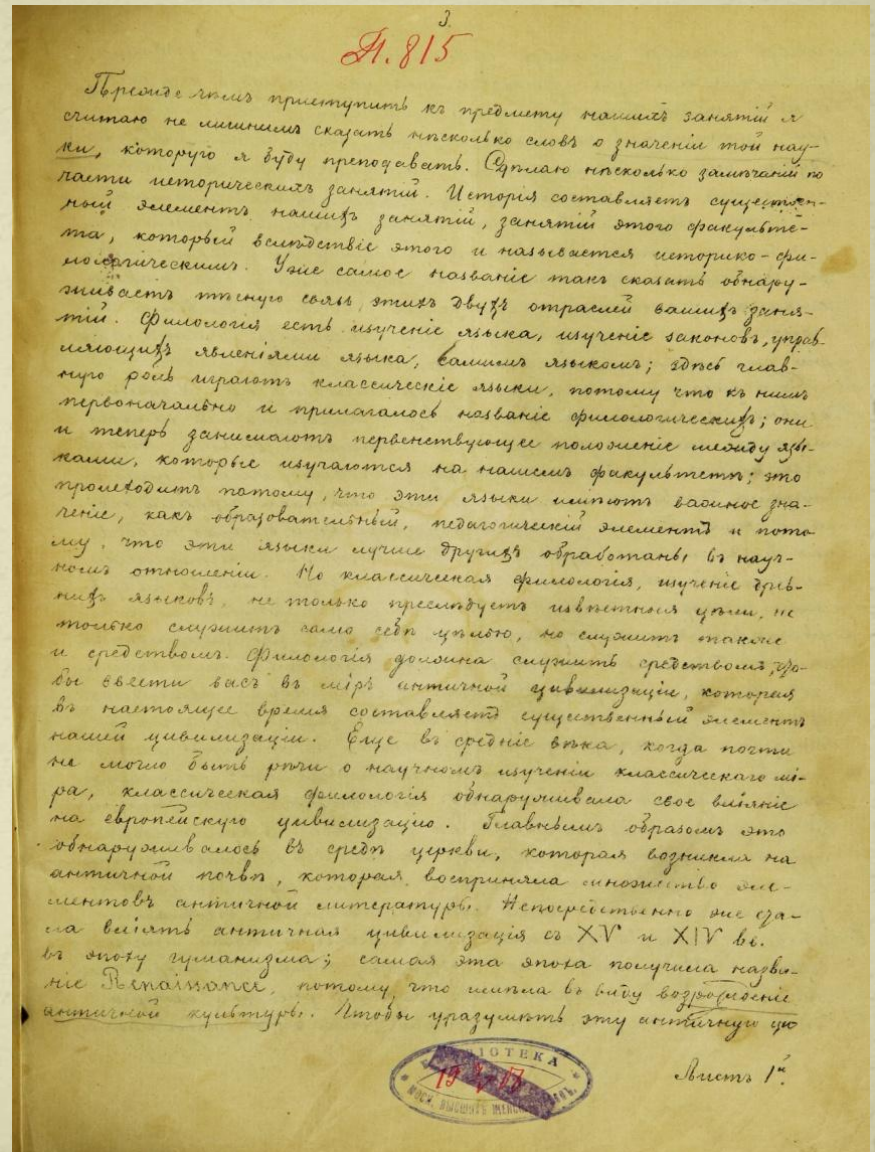 3.
П. 815
Прежде чѣмъ приступить къ предмету нашихъ занятій я
считаю не лишнимъ сказать нѣсколько словъ о значеніи той нау-
ки, которую я буду преподавать. Сдѣлаю нѣсколько замѣчаній по
части историческихъ занятій. Исторія составляетъ существен-
ный элементъ нашихъ занятій, занятій этого факульте-
та, который вслѣдствіе этого и называется историко-фи-
лологическимъ. Уже самое названіе такъ сказать обнару-
живаетъ тѣсную связь этихъ двухъ отраслей вашихъ заня-
тій. Филологія есть изученіе языка, изученіе законовъ, управ-
ляющихъ явленіями языка, самимъ языкомъ; здѣсь глав-
ную роль играютъ классическіе языки, потому что къ нимъ
первоначально и прилагалось названіе филологическихъ; они
и теперь занимаютъ первенствующее положеніе между язы-
ками, которые изучаются на нашемъ факультетѣ; это
происходитъ потому, что эти языки имѣютъ важное зна-
ченіе, какъ образовательный, педагогическій элементъ и пото
му, что эти языки лучше другихъ обработаны въ науч-
номъ отношеніи. Но классическая филологія, изученіе древ-
нихъ языковъ, не только преслѣдуетъ извѣстныя цѣли, не
только служитъ сама себѣ цѣлью, но служитъ также
и средствомъ. Филологія должна служить средствомъ, что-
бы ввести васъ въ міръ античной цивилизаціи, которая
въ настоящее время составляетъ существенный элементъ
нашей цивилизаціи. Еще въ средніе вѣка, когда почти
не могло быть рѣчи о научномъ изученіи классическаго мі-
ра, классическая филологія обнаруживала свое вліяніе
на европейскую цивилизацію. Главнымъ образомъ это
обнаруживалось въ средѣ церкви, которая возникла на
античной почвѣ, которая восприняла множество эле-
ментовъ античной литературы. Непосредственно же ста-
ла вліять античная цивилизація съ XV и XIV вв.
въ эпоху гуманизма; самая эта эпоха получила назва-
ніе Renaissance, потому что имѣла въ виду возрожденіе
античной культуры. Чтобы уразумѣть эту античную ци
Листъ 1й.
БИБЛІОТЕКА
МОСК. ВЫСШИХЪ ЖЕНСКИХЪ